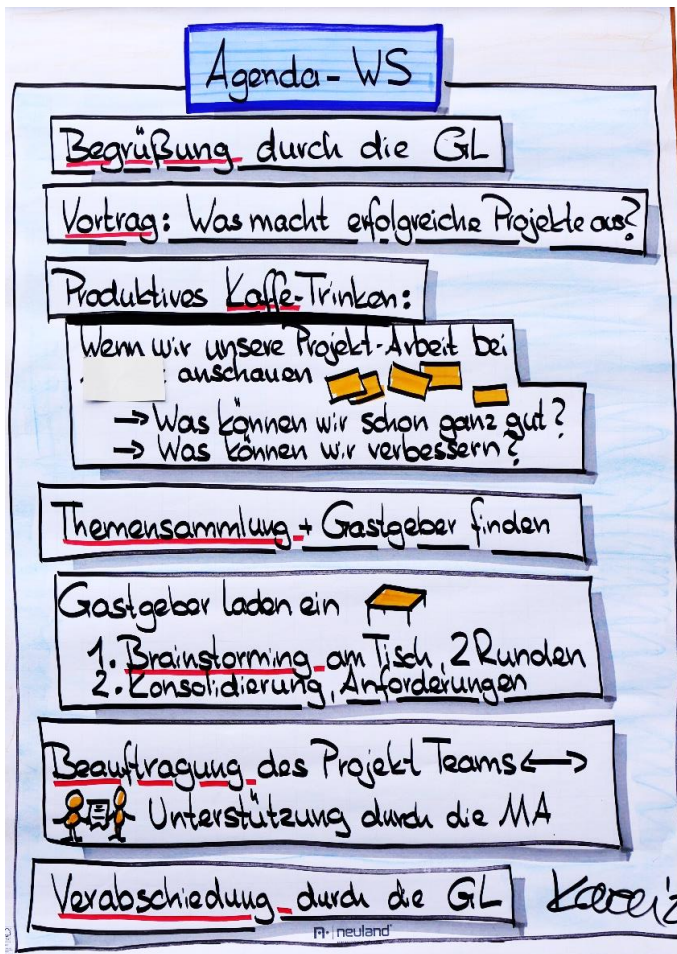 Agenda - WS
Begrüßung durch die GL
Vortrag: Was macht erfolgreiche Projekte aus?
Produktives Kaffe-Trinken:
Wenn wir unsere Projekt-Arbeit bei
anschauen
→ Was können wir schon ganz gut?
→ Was können wir verbessern?
Themensammlung + Gastgeber finden
Gastgeber laden ein
1. Brainstorming am Tisch, 2 Runden
2. Konsolidierung, Anforderungen
Beauftragung des Projekt Teams ↔
Unterstützung durch die MA
Verabschiedung durch die GL
neuland